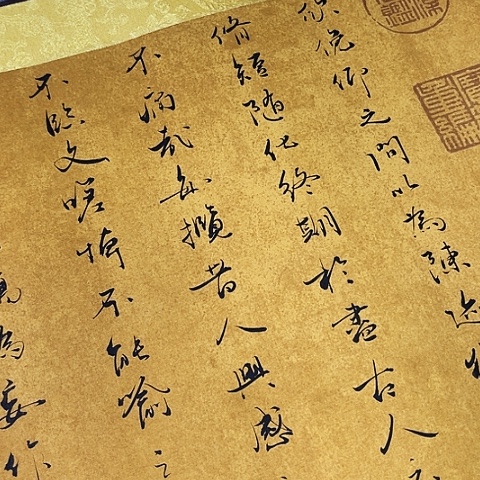 欣俛仰之間以為陳迹
脩短隨化終期於盡古人云
不痛哉每攬昔人興感
不臨文嗟悼不能喻之
殤為妄作